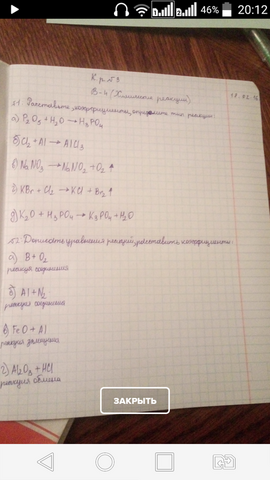 46% 20:12
К р №3
В-4 (Химические реакции)
№1. Расставьте коэффициенты, определите тип реакции:
а) P₂O₅ + H₂O → H₃PO₄
б) Cl₂ + Al → AlCl₃
в) NaNO₃ → NaNO₂ + O₂ ↑
г) KBr + Cl₂ → KCl + Br₂ ↑
д) K₂O + H₃PO₄ → K₃PO₄ + H₂O
№2. Допишите уравнения реакций, расставьте коэффициенты:
а) B + O₂
реакция соединения
б) Al + N₂
реакция соединения
в) FeO + Al
реакция замещения
г) Al₂O₃ + HCl
реакция обмена
ЗАКРЫТЬ